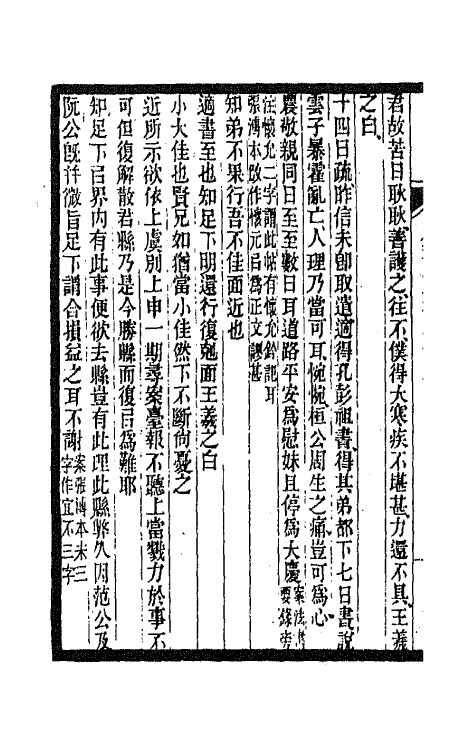 君故苦日耿耿善護之往不僕得大寒疾不堪甚力還不具王羲
之白
十四日疏昨信未即取遣適得孔彭祖書得其弟都下七日書說
雲子暴霍亂亡人理乃當可耳惋惋桓公周生之痛豈可為心
農敬親同日至至數日耳道路平安為慰妹且停為大慶案法書要錄旁
注懷允二字謂此帖有懷允龄記耳
張溥本改作懷元㠯為正文謬甚
知弟不果行吾不佳面近也
適書至也知足下明還行復剋面王羲之白
小大佳也賢兄如猶當小佳然下不斷尚憂之
近所示欲依上虞別上申一期尋案臺報不聽上當戮力於事不
可但復解散君縣乃是今勝縣而復㠯為難耶
知足下㠯界內有此事便欲去縣豈有此理此縣弊久因范公及
阮公旣許微旨足下謂合損益之耳不謝案張溥本末三
字作宜不三字